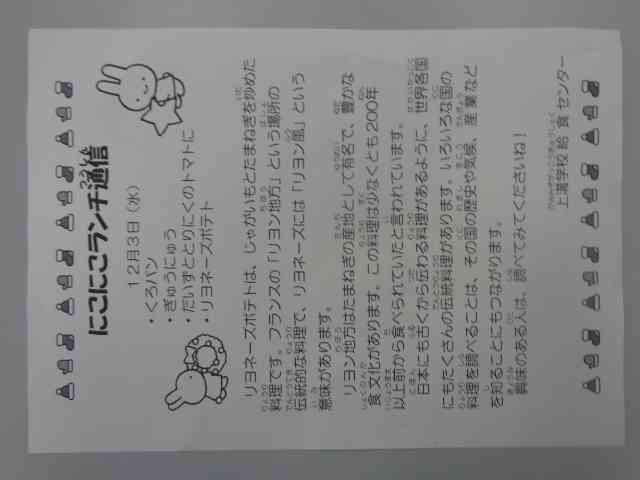 にこにこランチ通信
12月3日（水）
・くろパン
・ぎゅうにゅう
・だいずととりにくのトマトに
・リヨネーズポテト
リヨネーズポテトは、じゃがいもとたまねぎを炒めた
料理です。フランスの「リヨン地方」という場所の
伝統的な料理で、リヨネーズには「リヨン風」という
意味があります。
リヨン地方はたまねぎの産地として有名で、豊かな
食文化があります。この料理は少なくとも200年
以上前から食べられていたと言われています。
日本にも古くから伝わる料理があるように、世界各国
にもたくさんの伝統料理があります。いろいろな国の
料理を調べることは、その国の歴史や気候、産業など
を知ることにもつながります。
興味のある人は、調べてみてくださいね！
上溝学校給食センター